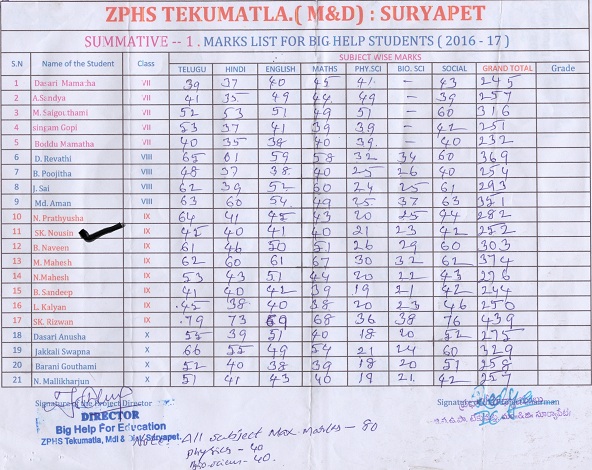 ZPHS TEKUMATLA.( M&D) : SURYAPET
SUMMATIVE -- 1 . MARKS LIST FOR BIG HELP STUDENTS ( 2016 - 17 )
S.N Name of the Student Class SUBJECT WISE MARKS
TELUGU HINDI ENGLISH MATHS PHY.SCI BIO. SCI SOCIAL GRAND TOTAL Grade
1 Dasari Mamatha VII 39 37 40 45 41 - 43 245
2 A.Sandya VII 41 35 49 44 49 - 39 257
3 M. Saigouthami VII 52 53 51 49 51 - 60 316
4 singam Gopi VII 53 37 41 39 39 - 42 251
5 Boddu Mamatha VII 40 35 38 40 39 - 40 232
6 D. Revathi VIII 65 61 59 58 32 34 60 369
7 B. Poojitha VIII 48 37 38 40 25 26 40 254
8 J. Sai VIII 62 39 52 60 24 25 61 293
9 Md. Aman VIII 63 60 54 49 25 37 63 351
10 N. Prathyusha IX 64 41 45 43 20 25 44 282
11 SK. Nousin IX 45 40 41 40 21 23 42 252
12 B. Naveen IX 61 46 50 51 26 29 60 303
13 M. Mahesh IX 62 60 61 67 30 32 62 374
14 N.Mahesh IX 53 43 51 44 20 22 43 276
15 B. Sandeep IX 41 40 42 39 19 21 42 244
16 L. Kalyan IX 45 38 40 38 20 23 46 250
17 SK. Rizwan IX 79 73 69 68 36 38 76 439
18 Dasari Anusha X 55 39 51 40 18 20 52 275
19 Jakkali Swapna X 66 55 49 54 21 24 60 329
20 Barani Gouthami X 52 40 38 39 18 20 51 258
21 N. Mallikharjun X 51 41 43 40 19 21 42 257
Signature of the Project Director Signature of the Chairman
DIRECTOR
Big Help For Education
ZPHS Tekumatla, Mdl & Dist Suryapet.
Note: All subject Max. Marks - 80
physics - 40
Bioscience - 40.